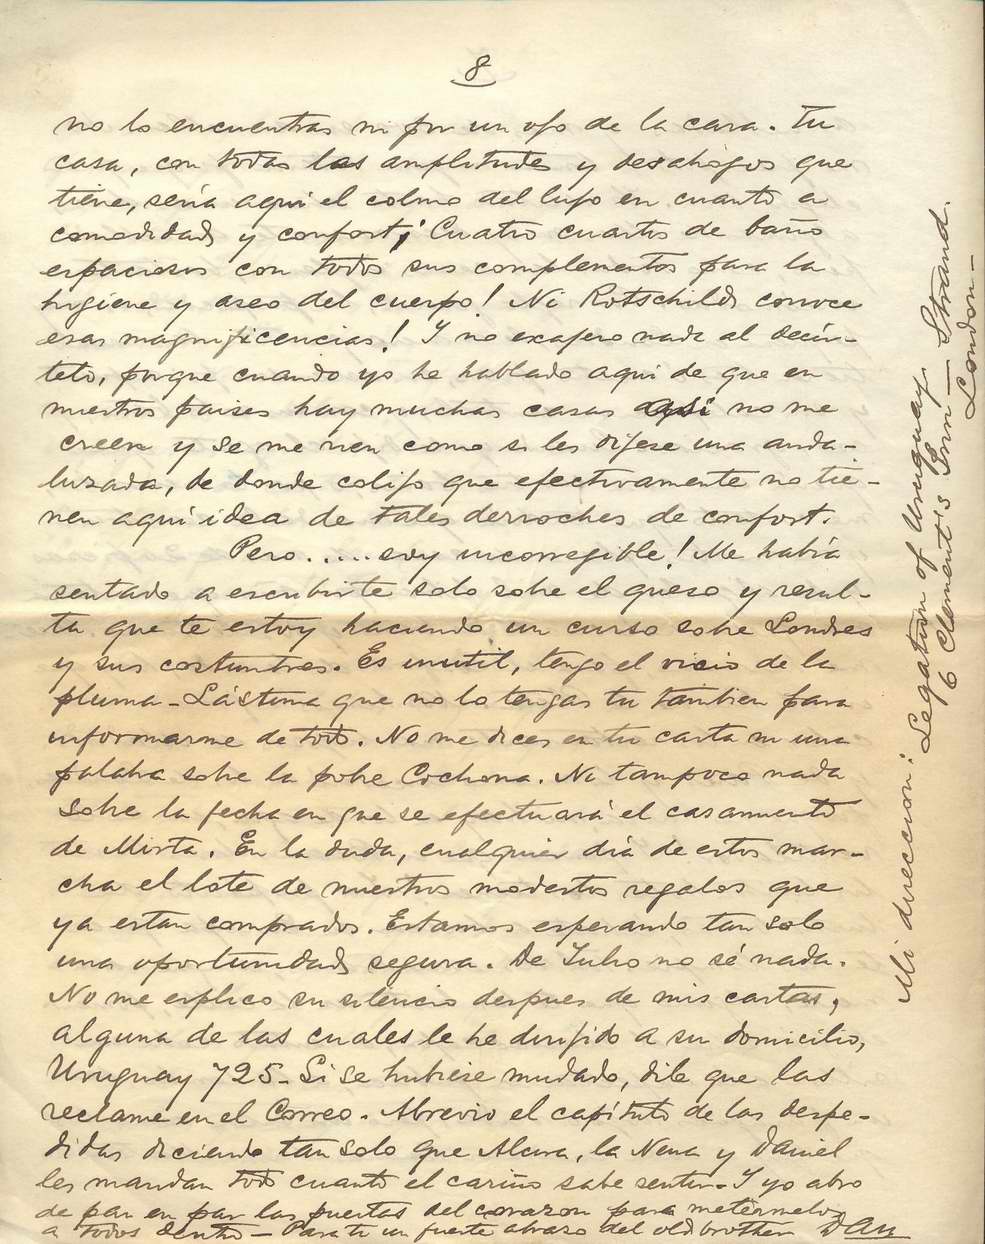 8
no lo encuentras ni por un ojo de la cara. Tu
casa, con todas las amplitudes y desahogos que
tiene, sería aquí el colmo del lujo en cuanto a
comodidad y confort; ¡Cuatro cuartos de baño
espaciosos con todos sus complementos para la
higiene y aseo del cuerpo! Ni Rotschild conoce
esas magnificencias! Y no exajero nada al decír-
telo, porque cuando yo he hablado aquí de que en
nuestros paises hay muchas casas así no me
creen y se me rien como si les dijese una anda-
luzada, de donde colijo que efectivamente no tie-
nen aquí idea de tales derroches de confort.
Pero..... soy incorregible! Me había
sentado a escribirte solo sobre el queso y resul-
ta que te estoy haciendo un curso sobre Londres
y sus costumbres. Es inutil, tengo el vicio de la
pluma - Lástima que no lo tengas tu tambien para
informarme de todo. No me dices en tu carta ni una
palabra sobre la pobre Cochona. Ni tampoco nada
sobre la fecha en que se efectuará el casamiento
de Mirta. En la duda, cualquier día de estos mar-
cha el lote de nuestros modestos regalos que
ya estan comprados. Estamos esperando tan solo
una oportunidad segura. De Julio no sé nada.
No me explico su silencio despues de mis cartas,
alguna de las cuales le he dirijido a su domicilio,
Uruguay 725 - Si se hubiese mudado, dile que las
reclame en el Correo. Abrevio el capítulo de las despe-
didas diciendo tan solo que Alcira, la Nena y Daniel
les mandan todo cuanto el cariño sabe sentir - Y yo abro
de par en par las puertas del corazon para metermelos
a todos dentro - Para ti un fuerte abrazo del old brother Dan
Mi direccion: Legation of Uruguay.
6 Clement's Inn - Strand.
London -